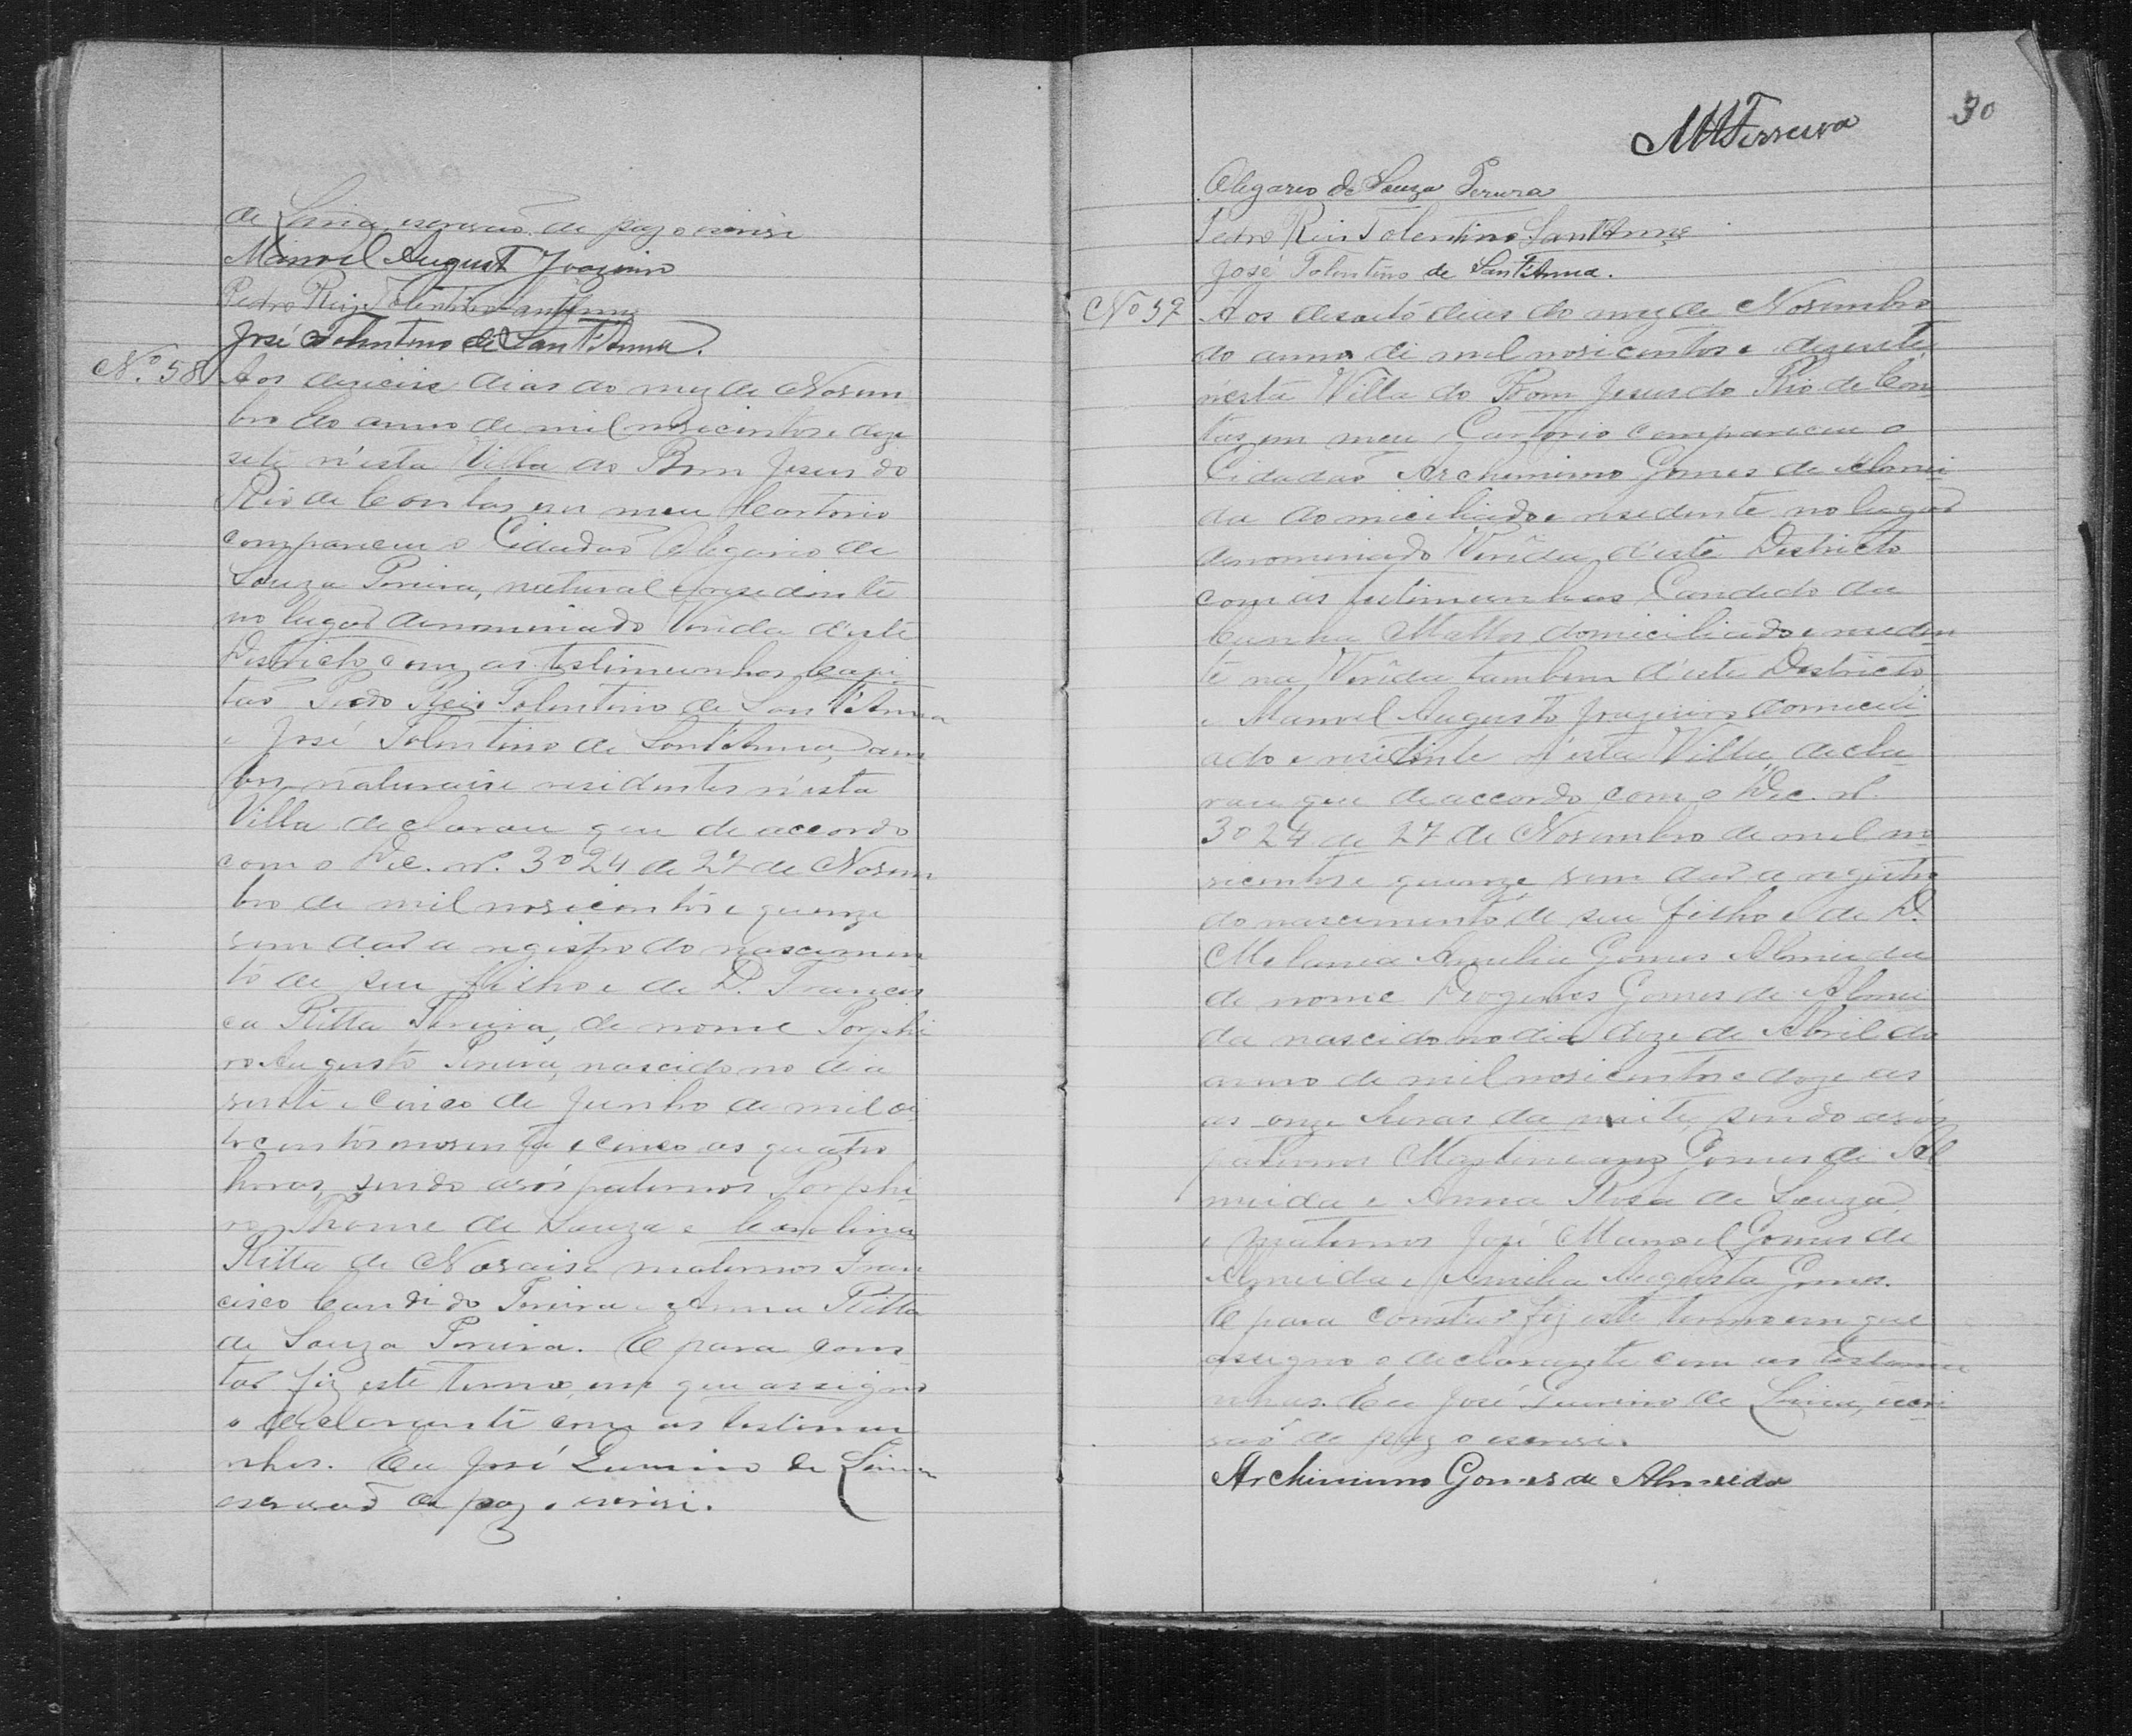 de Lima, escrivaõ de paz o escrivi
Manoel Augusto Joazeiro
Pedro Reis Tolentino Sant'Anna
José Tolentino de Sant'Anna.
Nº 58 Aos dezeseis dias do mez de Novem
bro do anno de mil novicentos e deze
sete n'esta Villa do Bom Jesus do
Rio de Contas em meu Cartorio
compareceu o Cidadaõ Olegario de
Souza Pereira, natural e residente
no lugar denominado Verêda d'este
Districto, com as testimunhas Capi
taõ Pedro Reis Tolentino de Sant'Anna
e José Tolentino de Sant'Anna, am
bos naturais e residentes n'esta
Villa declarou que de accordo
com o Dec. nº. 3024 de 27 de Novem
bro de mil novicentos e quinze
vem dar a registro do nascimen
to de seu filho e de D. Francis
ca Ritta Pereira, de nome Porphi
ro Augusto Pereira, nascido no dia
vinte e cinco de Junho de mil oi
tocentos noventa e cinco as quatro
horas, sendo avós paternos Porphi
ro Thome de Souza e Carolina
Ritta de Novais e maternos Fran
cisco Candido Pereira e Anna Ritta
de Souza Pereira. E para cons
tar fiz este termo em que assigna
o declarante com as testimu
nhas. Eu José Quirino de Lima
escrivaõ de paz o escrivi.
MAFerreira
30
Olegario de Souza Perura
Pedro Reis Tolentino Sant'Anna
José Tolentino de Sant'Anna.
Nº 59 Aos desoito dias do mez de Novembro
do anno de mil novicentos e dezesete
n'esta Villa do Bom Jesus do Rio de Con
tas em meu Cartorio compareceu o
Cidadaõ Archimimo Gomes de Almei
da domiciliado e residente no lugar
denominado Verêda d'este Districto
com as testimunhas Candido da
Cunha Mattos domiciliado e residen
te na Verêda tambem d'este Districto
e Manoel Augusto Joazeiro domicili
ado e residente n'esta Villa, decla
rou que de accordo com o Dec. nº.
3024 de 27 de Novembro de mil no
vicentos e quinze vem dar a registro
do nascimento de seu filho e de D.
Melania Amelia Gomes Almeida
de nome Diogenes Gomes de Almei
da nascido no dia doze de Abril do
anno de mil novicentos e doze as
as onze horas da noite, sendo avós
paternos Martiniano Gomes de Al
meida e Anna Rosa de Souza,
e maternos José Manoel Gomes de
Almeida e Amelia Augusta Gomes.
E para constar fiz este termo em que
assigna o declarante com as testimu
nhas. Eu José Quirino de Lima, escri
vaõ de paz o escrivi.
Archimimo Gomes de Almeida